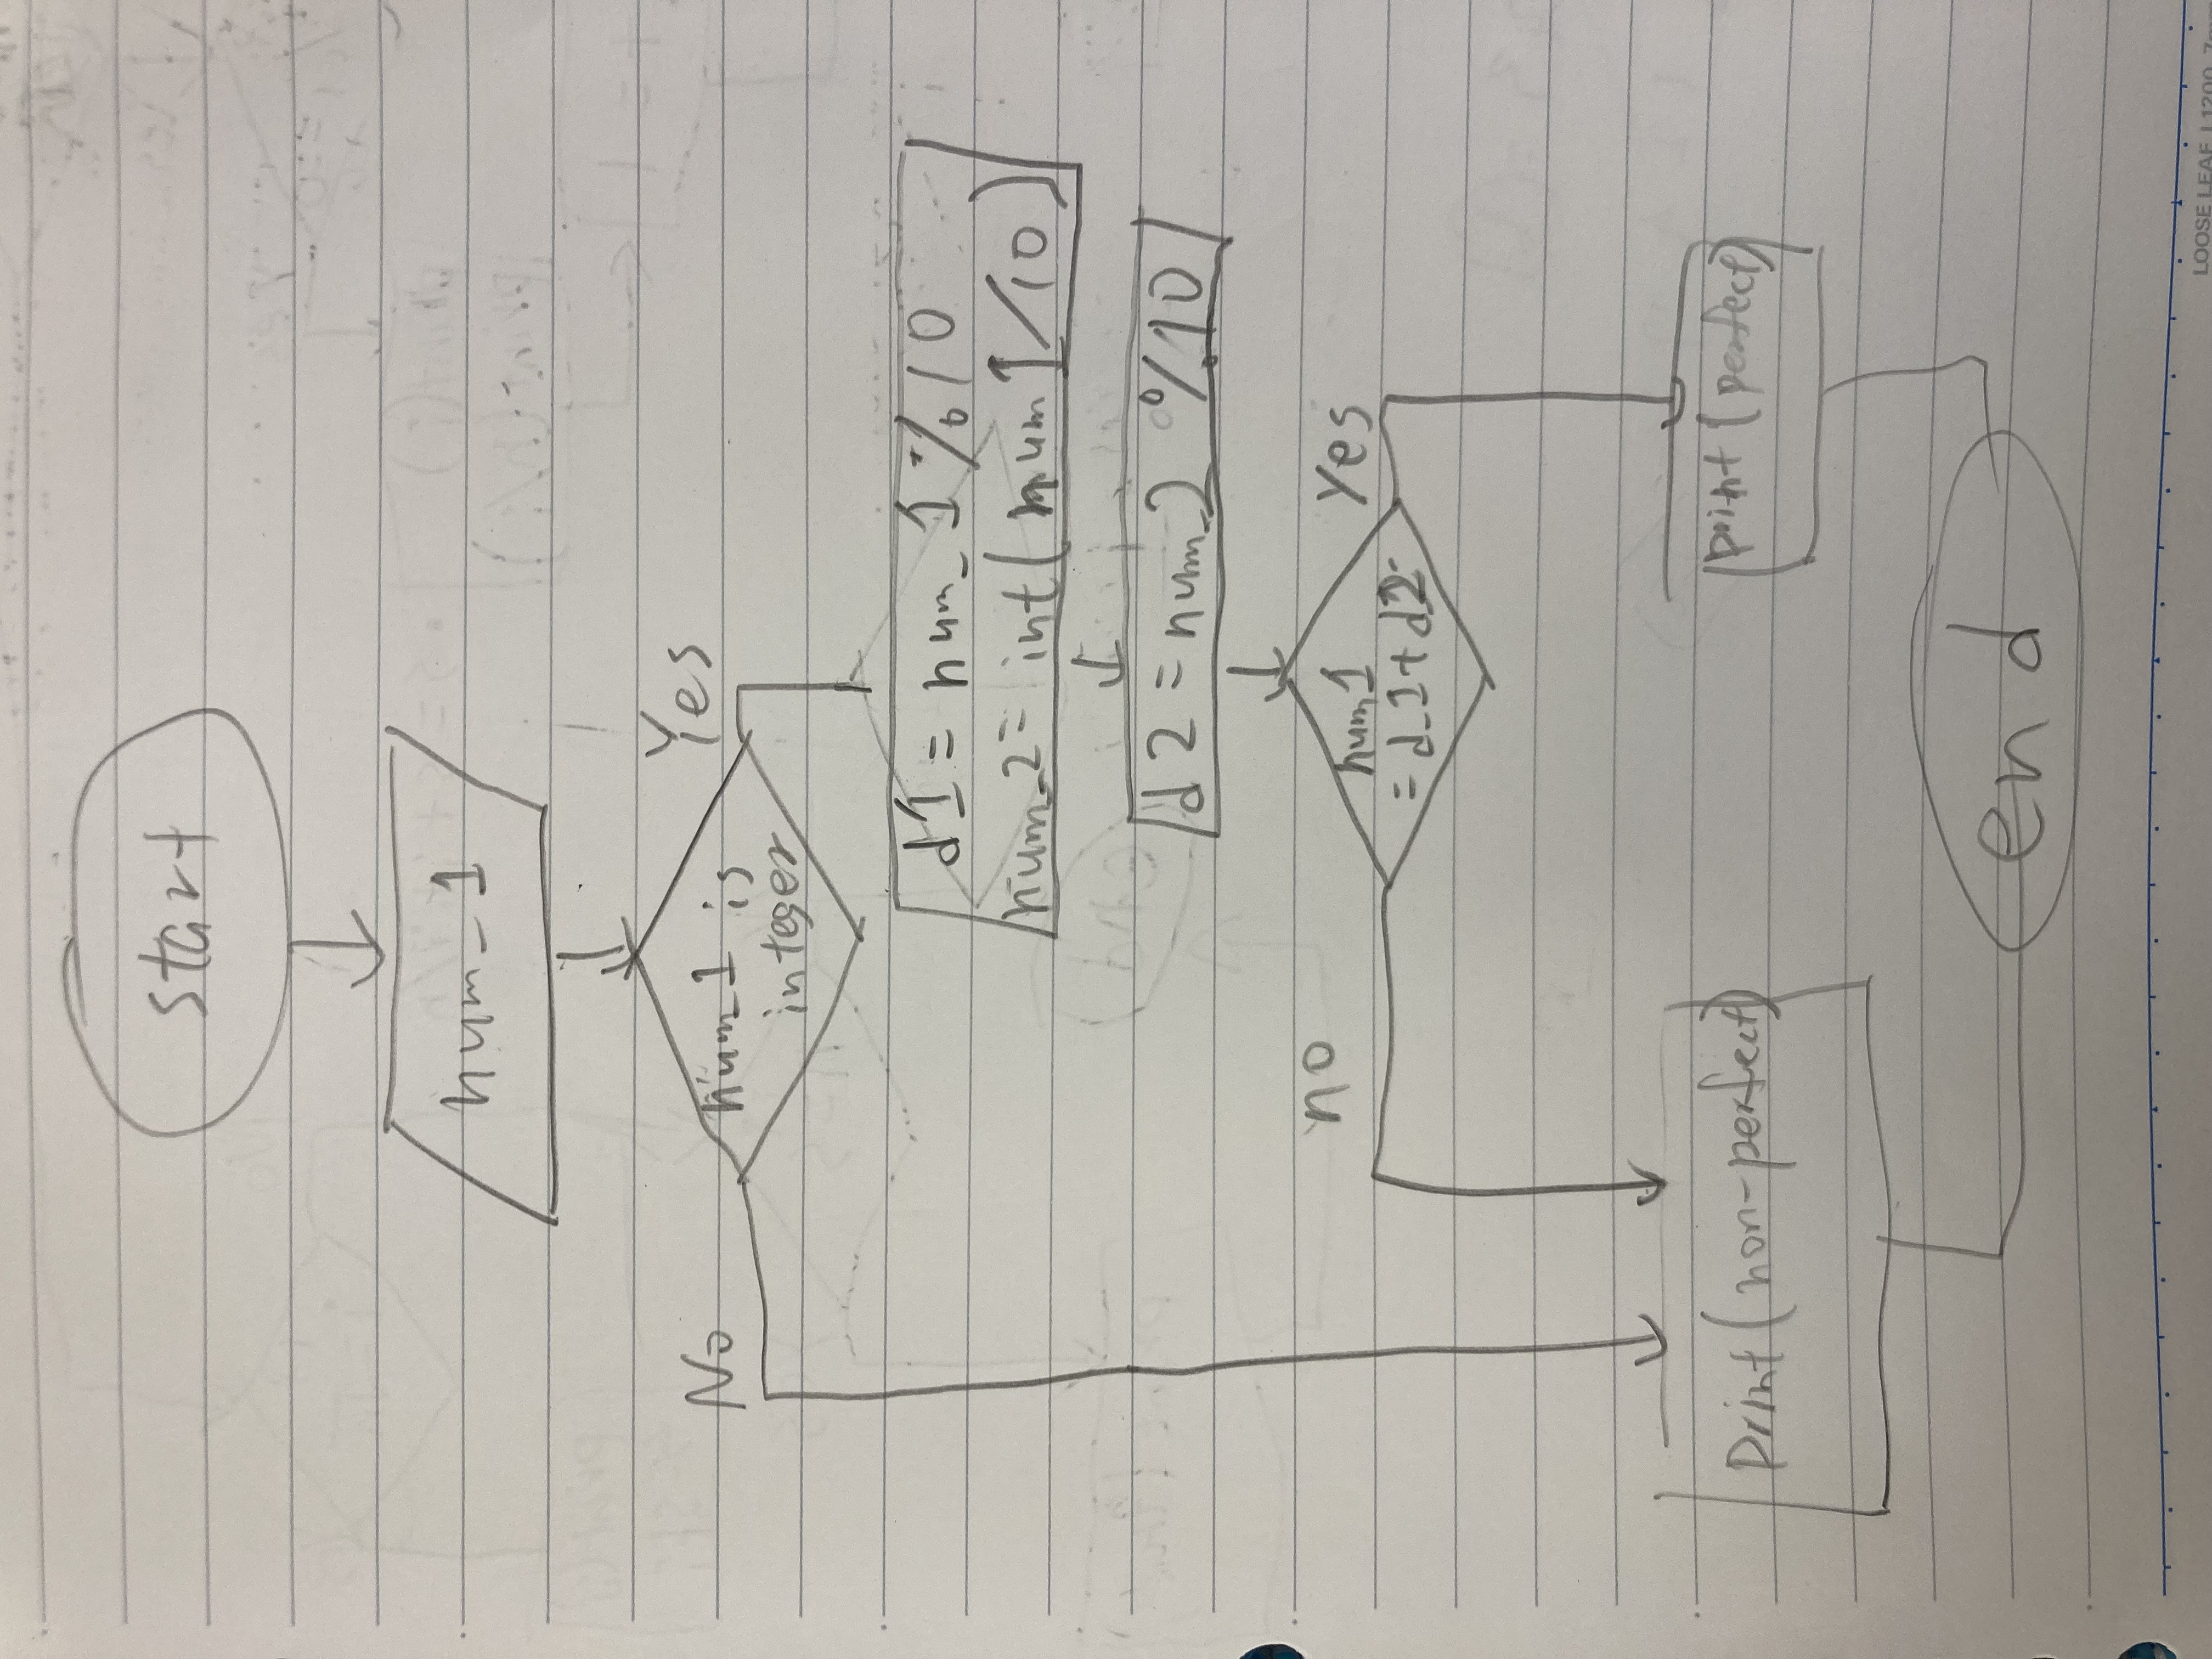 start
num_1
No
Yes
num_1 is
integer
d1 = num_1 % 10
num_2 = int(num1/10)
d2 = num_2 % 10
no
Yes
num1
= d_1 + d2
Print(non-perfect)
print(perfect)
end
LOOSE LEAF L1200